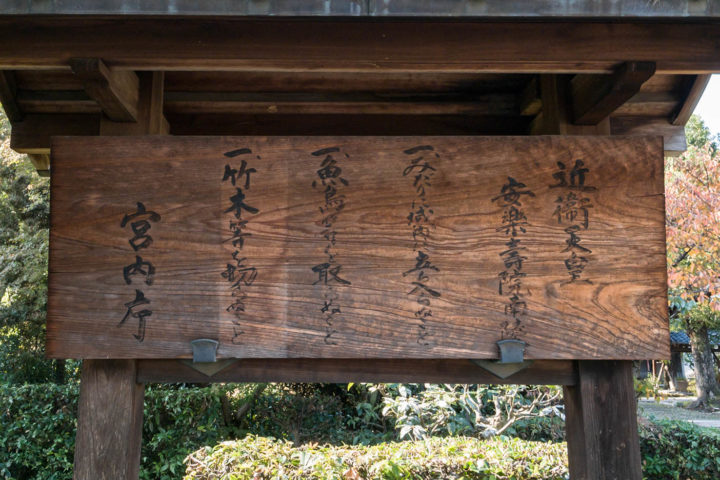 近衛天皇
安樂壽院南陵
一、みだりに域内に立入らぬこと
一、魚鳥等を取らぬこと
一、竹木等を切らぬこと
宮内庁